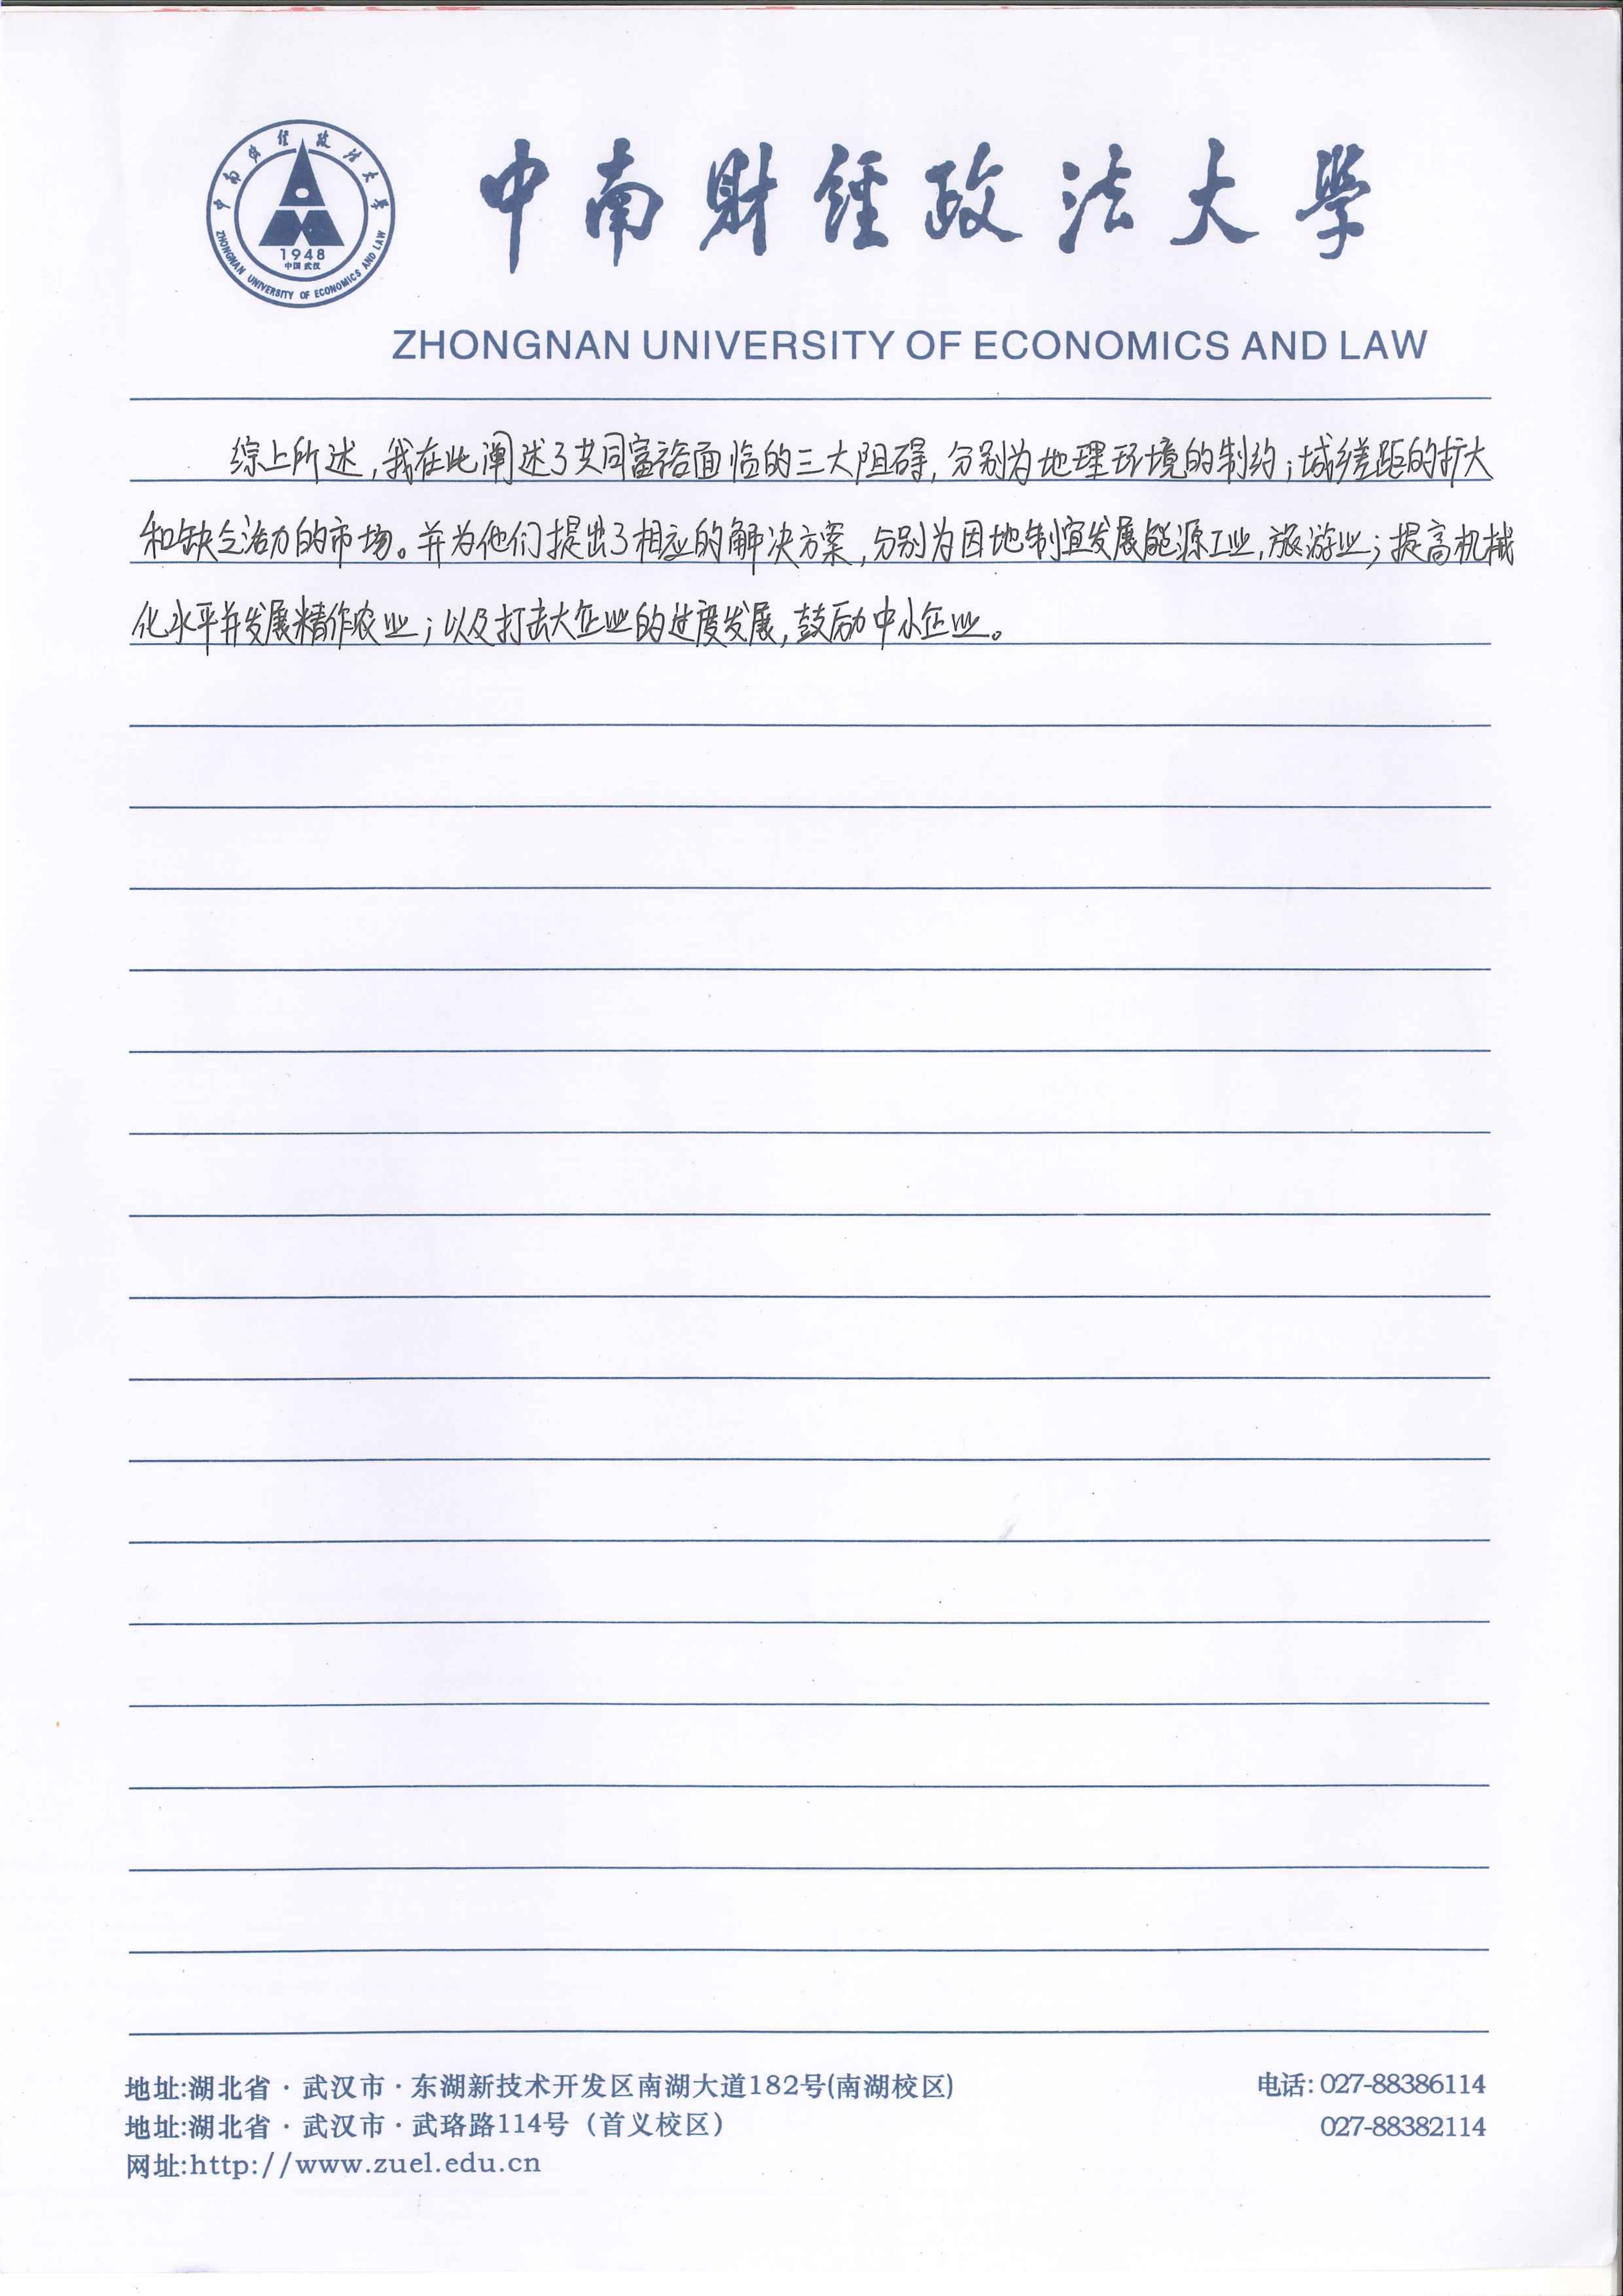 中南财经政法大学
1948
中国 武汉
ZHONGNAN UNIVERSITY OF ECONOMICS AND LAW
中南财经政法大學
ZHONGNAN UNIVERSITY OF ECONOMICS AND LAW
综上所述,我在此阐述了共同富裕面临的三大阻碍,分别为地理环境的制约;城乡差距的扩大
和缺乏活力的市场。并为他们提出了相应的解决方案,分别为因地制宜发展能源工业,旅游业;提高机械
化水平并发展精作农业;以及打击大企业的过度发展,鼓励中小企业。
地址:湖北省·武汉市·东湖新技术开发区南湖大道182号(南湖校区)
电话: 027-88386114
地址:湖北省·武汉市·武珞路114号(首义校区)
027-88382114
网址:http://www.zuel.edu.cn